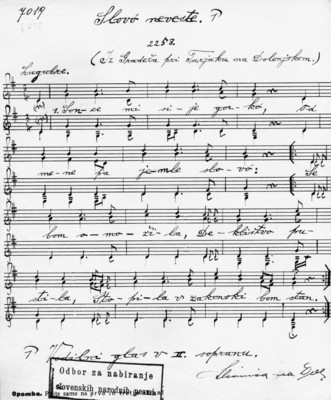 7019
Slovó neveste.
2253.
(Iz Gradeža pri Turjaku na Dolenjskem.)
Lugubre.
1. Son-ce mi si-je gor-kó, Od
me-ne pa jem-lje slo-vó; Se
bom o-mo-ži-la, De-klištvo pu-
stila, Sto-pi-la v zakonski bom stan.
Vodilni glas v II. sopranu.
Odbor za nabiranje
slovenskih narodnih pesmi
Opomba. same na prvo in